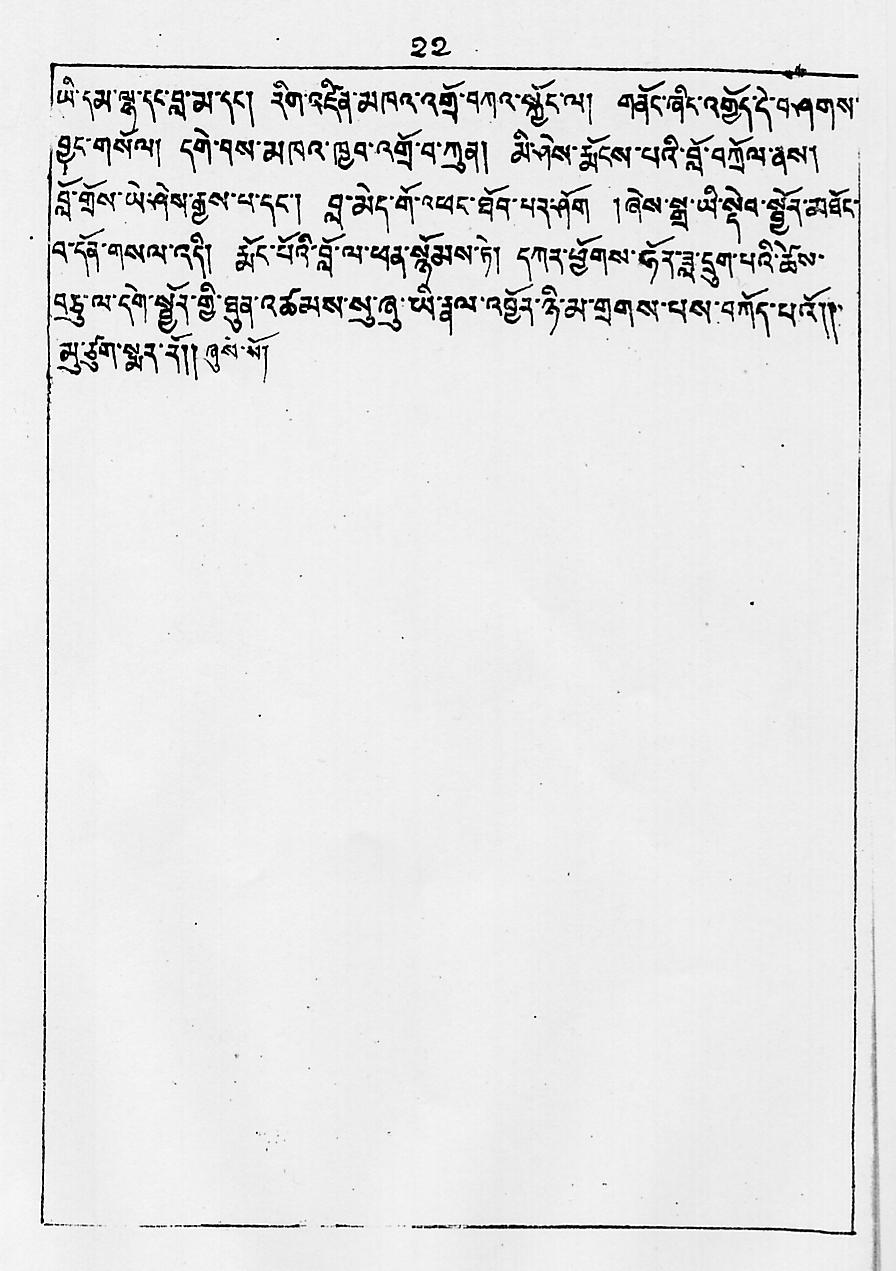 ༢༢
ཡི་དམ་ལྷ་དང་བླ་མ་དང། རིག་འཛིན་མཁའ་འགྲོ་བཀའ་སྐྱོང་ལ། གནོང་ཞིང་འགྱོད་དེ་བཤགས་
བྱང་གསོལ། དགེ་བས་མཁའ་ཁྱབ་འགྲོ་བ་ཀུན། མི་ཤེས་རྨོངས་པའི་བློ་བཀྲོལ་ནས།
བློ་གྲོས་ཡེ་ཤེས་རྒྱས་པ་དང་། བླ་མེད་གོ་འཕང་ཐོབ་པར་ཤོག །ཞེས་སྒྲ་ཡི་སྡེབ་སྦྱོར་མཐོང་
བ་དོན་གསལ་འདི། རྨོང་པོའི་བློ་ལ་ཕན་སྙོམས་ཏེ། དཀར་ཕྱོགས་ཧོར་ཟླ་དྲུག་པའི་ཚེས་
བཅུ་ལ་དགེ་སྦྱོར་གྱི་ཐུན་འཚམས་སུ་ཞུ་ཡི་རྣལ་འབྱོར་ཉི་མ་གྲགས་པས་བཀོད་པའོ།།
མུ་ཙུག་སྨར་རོ།། ཞུས་སོ།